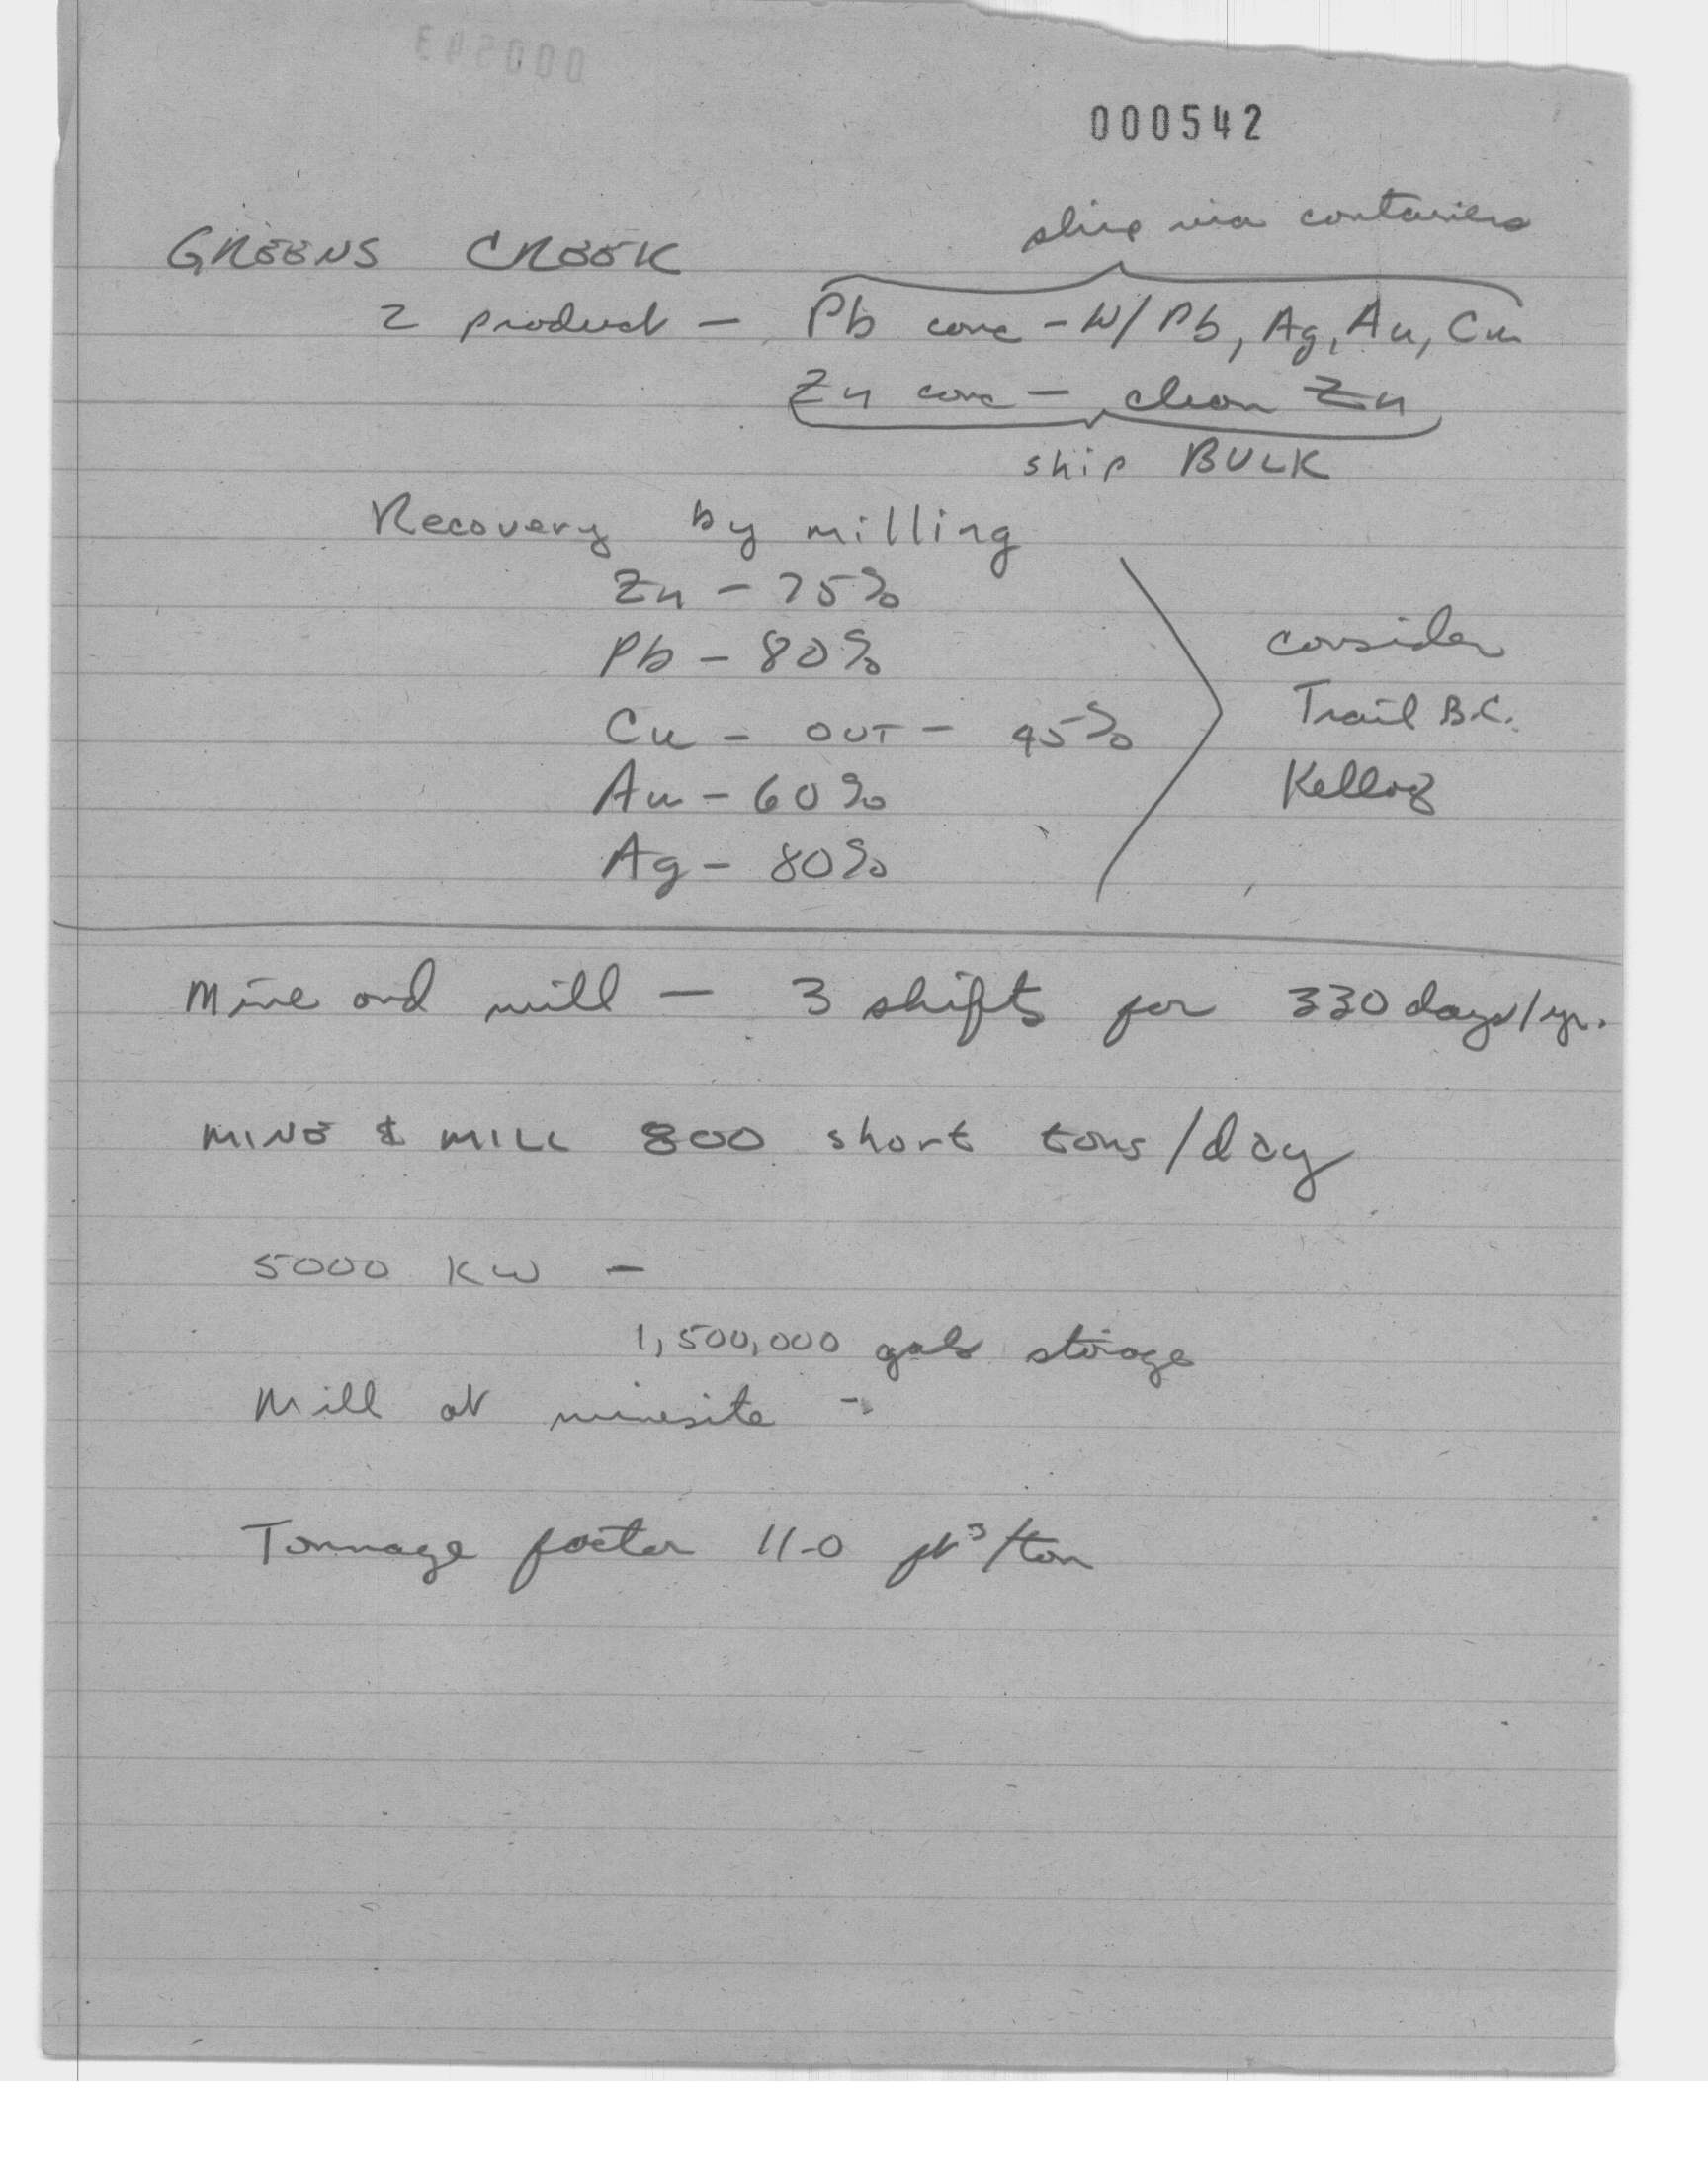 000543
000542
ship via containers
GREENS CREEK
2 product - Pb conc - W/ Pb, Ag, Au, Cu
Zn conc - clean Zn
ship BULK
Recovery by milling
Zn - 75%
Pb - 80%
consider
Cu - OUT - 45%
Trail B.C.
Au - 60%
Kellog
Ag - 80%
Mine and mill - 3 shifts for 330 days/yr.
MINE & MILL 800 short tons/day
5000 KW -
1,500,000 gals storage
Mill at minesite -
Tonnage factor 11.0 ft³/ton